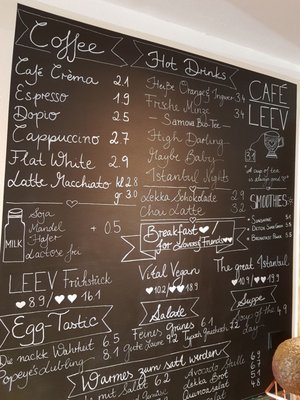 Coffee
Café Crèma 2.1
Espresso 1.9
Dopio 2.5
Cappuccino 2.7
Flat White 2.9
Latte Macchiato kl 2.8
gr 3.0
MILK
Soja
Mandel
Hafer
Lactose frei
+ 0.5
LEEV Frühstück
8.9 / 16.1
Egg-Tastic
Die nackte Wahrheit 6.5
Popeye's Liebling 8.1
Hot Drinks
Heiße Orange & Ingwer 3.4
Frische Minze 3.4
Samova Bio-Tee
High Darling
Maybe Baby
Istanbul Nights
Lekka Schokolade 2.9
Chai Latte 3.2
Breakfast
for Lovers/Friends
Vital Vegan
10.2 / 18.9
The great Istanbul
10.9 / 19.9
Salate
Feines Grünes 6.1
Gute Laune 9.2
Suppe
Soup of the day 4.9
Warmes zum satt werden
mit Salat 6.2
Avocado Stulle
Lekka Brot
Quinoasalat
CAFÉ
LEEV
"A cup of tea
is always good"
SMOOTHIES
Sunshine
Detox
Breakfast Power